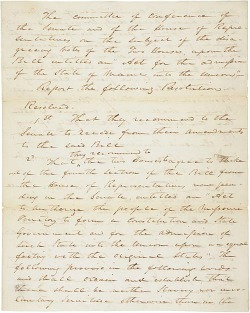 The committee of conference of
the Senate and of the House of Repre
sentatives on the subject of the disa
greeing votes of the two Houses, upon the
Bill entitled an Act for the admission
of the State of Maine into the Union
Report the following Resolution.
Resolved.
1st That they recommend to the
Senate to recede from their amendments
to the said Bill
2d That the two Houses agree to strike
they recommend
out of the fourth section of the Bill from
the House of Representatives now pen
ding in the Senate, entitled an Act
to authorize the people of the Missouri
Territory to form a Constitution and State
Government and for the admission of
such State into the Union upon an equal
footing with the original States the
following proviso in the following words
and shall ordain and establish that
there shall be neither Slavery nor invo
luntary servitude otherwise than in the